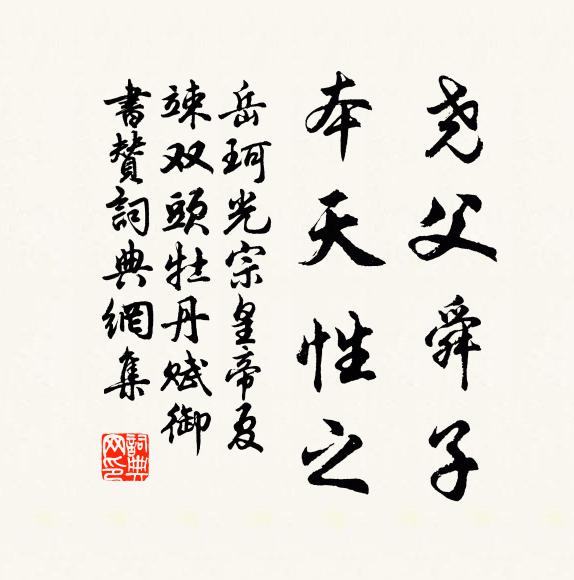 尧父舜子
本天性之
岳珂光宗皇帝夏
竦双頭牡丹赋御
書賛詞典網集
詞典网印